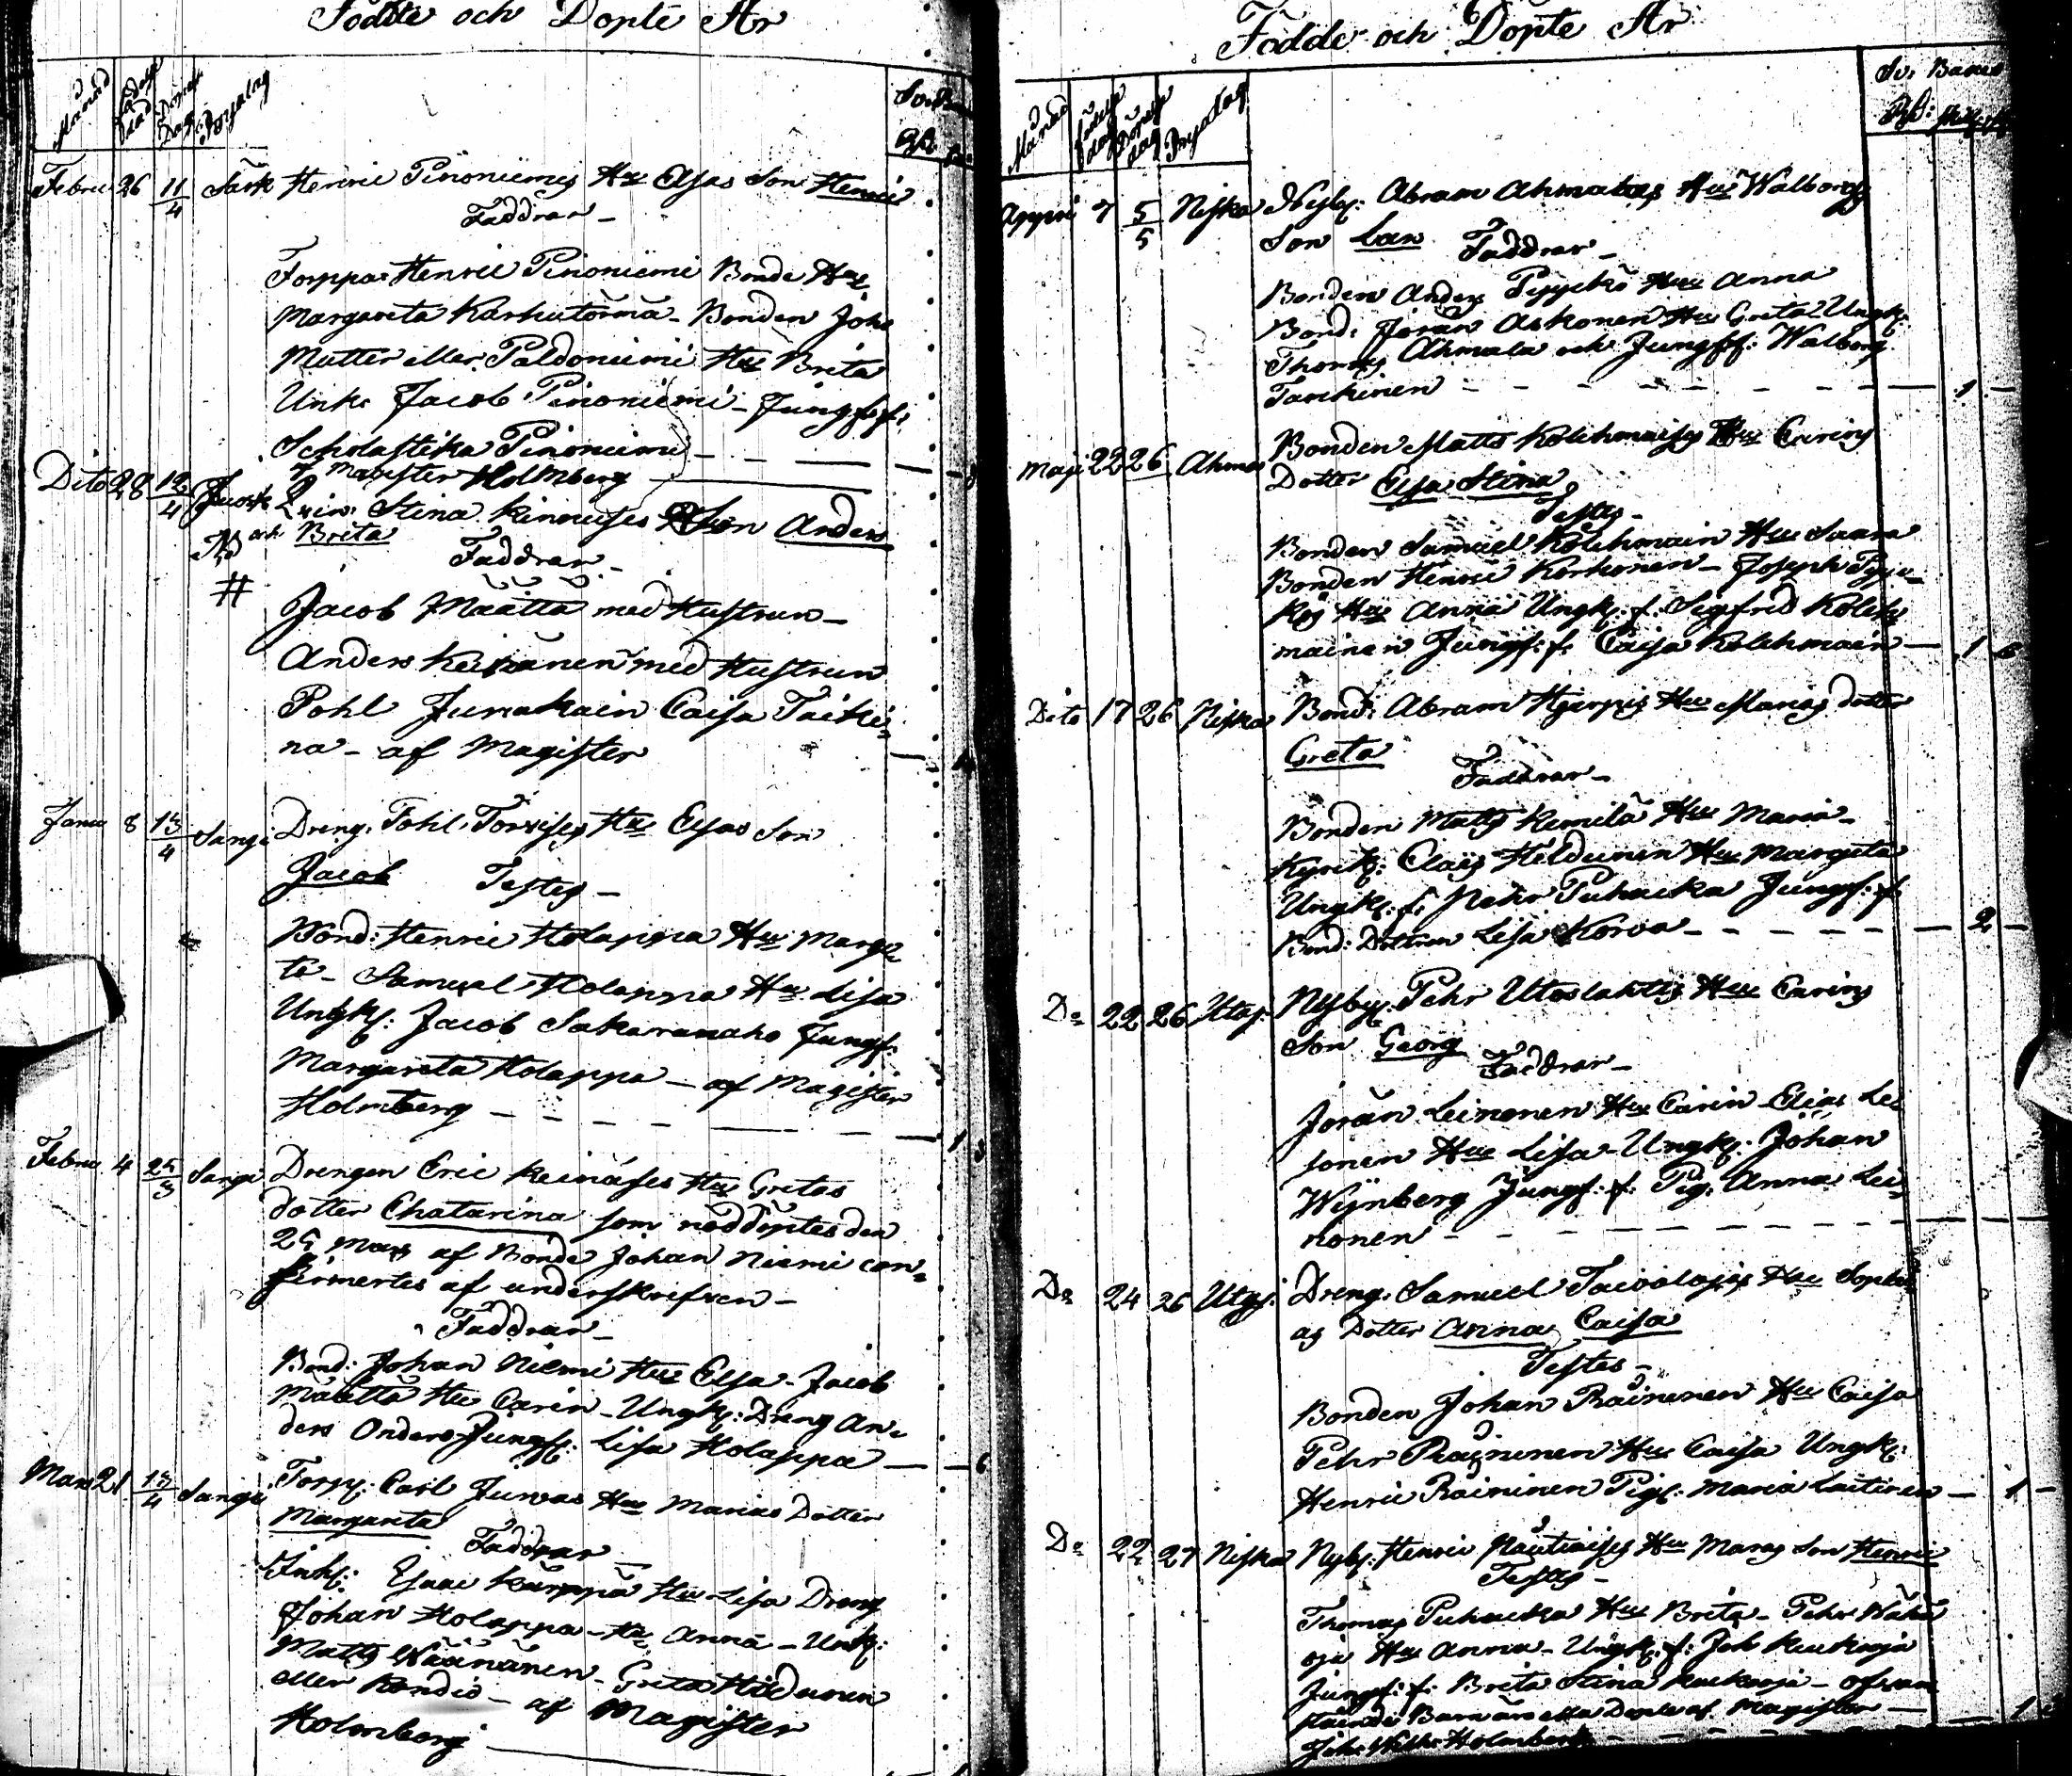 Födde och Döpte År
Månad
Födelse dag
Döpelse Dag
Byalag
Febru 26 11/4 Särk Henric Pinoniemis Hu Elsas Son Henric
Faddrar
Torppar Henric Pinoniemi Bonde Hu
Margareta Karhutörmä - Bonden Joh:
Mutter eller Paldoniemi Hu Brita
Unk: Jacob Pinoniemi - Jungf: f:
Scholastika Pinoniemi
af Magister Holmberg
Dito 28 12/4 Stina Kinnuses Son Anders
och Brita
Faddrar
#
Jacob Määttä med Hustrun
Anders Keinänen med Hustrun
Pohl Junakain Caisa Taiki-
na - af Magister
Janu 8 13/4 Sangi Dreng: Pohl Torvises Hu Elsas Son
Jacob Testes
Bond: Henric Holappa Hu Marge
ta - Samuel Holappa Hu Lisa
Ungk: Jacob Sakaranaho Jungf:
Margareta Holappa - af Magister
Holmberg 1
Febru 4 25/3 Sangi Drengen Eric Keinäses Hu Gretas
dotter Chatarina som nöddöptes den
25 Mars af Bonde Johan Niemi con-
firmertes af underskrefven
Faddrar
Bond: Johan Niemi Hu Elsa - Jacob
Määttä Hu Carin - Ungk: Dreng An-
ders Onders Jungf: Lisa Holappa 6
Mars 21 13/4 Sangi Torp: Carl Juvas Hu Marias Dotter
Margareta
Faddrar
Inh: Esaac Kärppä Hu Lisa Dreng
Johan Holappa - Hu Anna - Unk:
Matts Wäänänen - Greta Hildunen
eller Kondio - af Magister
Holmberg
Födde och Döpte År
Månad
Födelse dag
Döpelse dag
Byalag
Appri 7 5/5 Niska Nyby: Abram Ahmalas Hu Walborgs
Son Lars Faddrar
Bonden Anders Pyykkö Hu Anna
Bond: Jöran Askonen Hu Greta Ungk:
Thomas Ahmala och Jungf: Walborg
Tarkinen 1
Maji 22 26 Ahmas Bonden Matts Kolehmaises Hu Carins
Dotter Elsa Stina
Testes
Bonden Samuel Kolehmain Hu Saara
Bonden Henric Korhonen - Joseph Pyy-
kös Hu Anna Ungk: f: Sigfrid Koleh
mainen Jungf: f: Caisa Kolehmain 1 6
Dito 17 26 Niska Bond: Abram Hyerpes Hu Marias dotter
Greta
Faddrar
Bonden Matts Kemilä Hu Maria
Kyrck: Claës Heldunen Hu Margeta
Ungk: f: Pehr Puhacka Jungf: f:
Bond: Dottren Lisa Korva 2
Do 22 26 Utaj: Nyby: Pehr Utoslahtis Hu Carins
Son Georg
Faddrar
Jöran Leinonen Hu Carin Elias Lei
nonen Hu Lisa - Ungk: Johan
Wijnberg Jungf: f: Pig: Anna Lei-
nonen
Do 24 26 Utaj: Dreng: Samuel Taivalojas Hu Sophi
as Dotter Anna Caisa
Testes
Bonden Johan Räininen Hu Caisa
Pehr Räininen Hu Caisa Ungk:
Henric Räininen Pig: Maria Laitinen 1
Do 22 27 Niska Nyby: Henric Nautiaises Hu Marias Son Henric
Testes
Thomas Puhacka Hu Brita - Pehr Wähä
oja Hu Anna - Ungk: f: Joh Kuckasja
Jungf: f: Brita Stina Kuckasja - ofvan
stående Barn äro alla Döpte af Magister
Joh: Holmberg